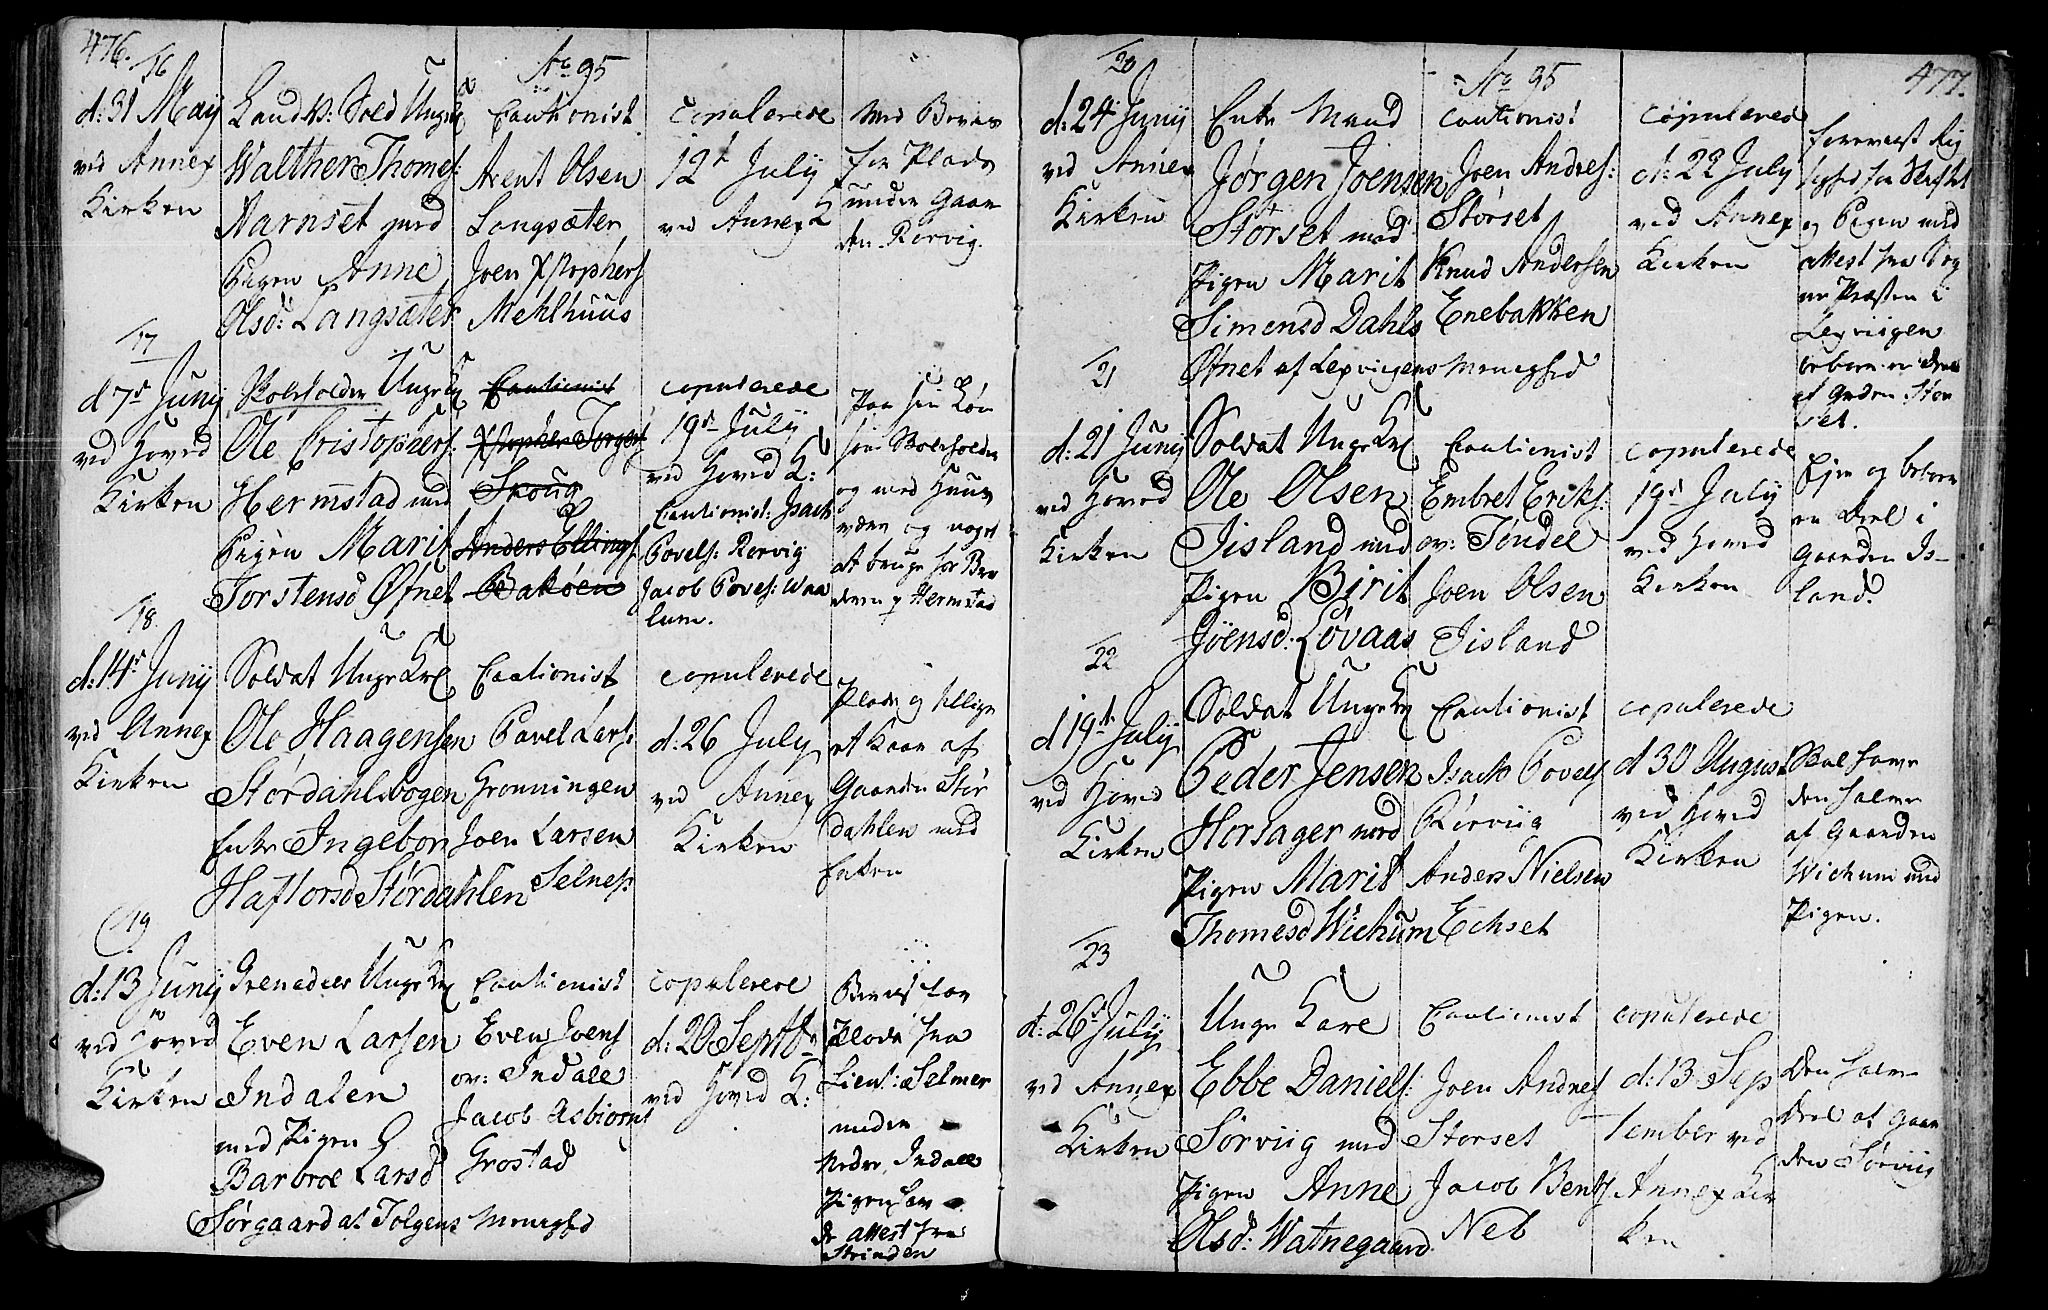 476.
No 95
16
d: 31 May
ved Annex
Kirken
Landv: Sold Unge K
Walther Thomes:
Narnset med
Pigen Anne
Olsd: Langsæter
Cautionist
Arent Olsen
Langsæter
Joen Xstophers
Mehlhuus
copulerede
12t July
ved Annex K
Med Beviis
for Plads
under Gaar
den Rorvig.
17
d 7de Juny
ved Hoved
Kirken
Skoleholder Unge K
Ole Cristophers:
Hermstad med
Pigen Marit
Torstensd Øfnet
Cautionist
Xstopher Torgers
Skoug
Anders Ellings
Bakøen
copulerede
19de July
ved Hoved K:
Cautionist: Isach
Povels: Rorvig
Jacob Povels: Waa
lum.
Paa sin Løn
som Skoleholder
og med Huus
være og noget
at bruge hos Bro
deren p Hermstad
18.
d: 14de Juny
ved Annex
Kirken
Soldat Unge Krl
Ole Haagensen
Stördahlsbogen
Enke Ingebor
Haftorsd Stördahlen
Cautionist
Pavel Lars:
Gronningen
Joen Larsen
Selnes
copulerede
d: 26 July
ved Annex
Kirken
Plads og tillige
et Kaar af
Gaarden Stör
dahlen med
Enken
19
d: 13 Juny
ved Hoved
Kirken
Grenadeer Unge K
Even Larsen
Indalen
med Pigen
Barbroe Larsd
Sørgaard af Tolgens Menighd
Cautionist
Even Joens
ov: Indall
Jacob Asbiorns
Grostad
copulerede
d: 20 Septbr
ved Hoved K:
Beviis for
Plads fra
Lieut: Selmer
under
Nedre Indall
Pigen har
attest fra
Strinden
477.
No 95
20
d: 24 Juny
ved Annex
Kirken
Enke Mand
Jørgen Joensen
Störset med
Pigen Marit
Simensd Dahls
Øfnet af Lexvigens Menighed
Cautionist
Joen Andres:
Störset
Knud Andersen
Enebakken
copulerede
d: 22 July
ved Annex
Kirken
og Pigen med
attest fra Sog
ne Præsten i
Lexviigen
beboer en deel
af Garden Stor
set.
21
d: 21 Juny
ved Hoved
Kirken
Soldat Unge Krl
Ole Olsen
Iisland med
Pigen Birit
Joensd: Lövaas
Cautionist
Embret Eriks:
ov: Töndel
Joen Olsen
Iisland
copulerede
19de July
ved Hoved
Kirken
Ejer og beboer
en deel i
Gaarden Is-
land.
22
d 19de July
ved Hoved
Kirken
Soldat Unge K
Peder Jensen
Horsager med
Pigen Marit
Thomesd Wichum
Cautionist
Isach Povels
Rörviig
Anders Nielsen
Echset
copulerede
d 30 August
ved Hoved
Kirken
Skal have
den halve
af Gaarden
Wichum med
Pigen.
23
d: 26de July
ved Annex
Kirken
Unge Karl
Ebbe Daniels:
Sörviig med
Pigen Anne
Olsd: Watnegaard
Cautionist
Joen Andres
Storset
Jacob Bents
Neb
copulerede
d: 13 Sep
tember ved
Annex Kir
ken
Den halve
Deel af Gaar
den Sörviig